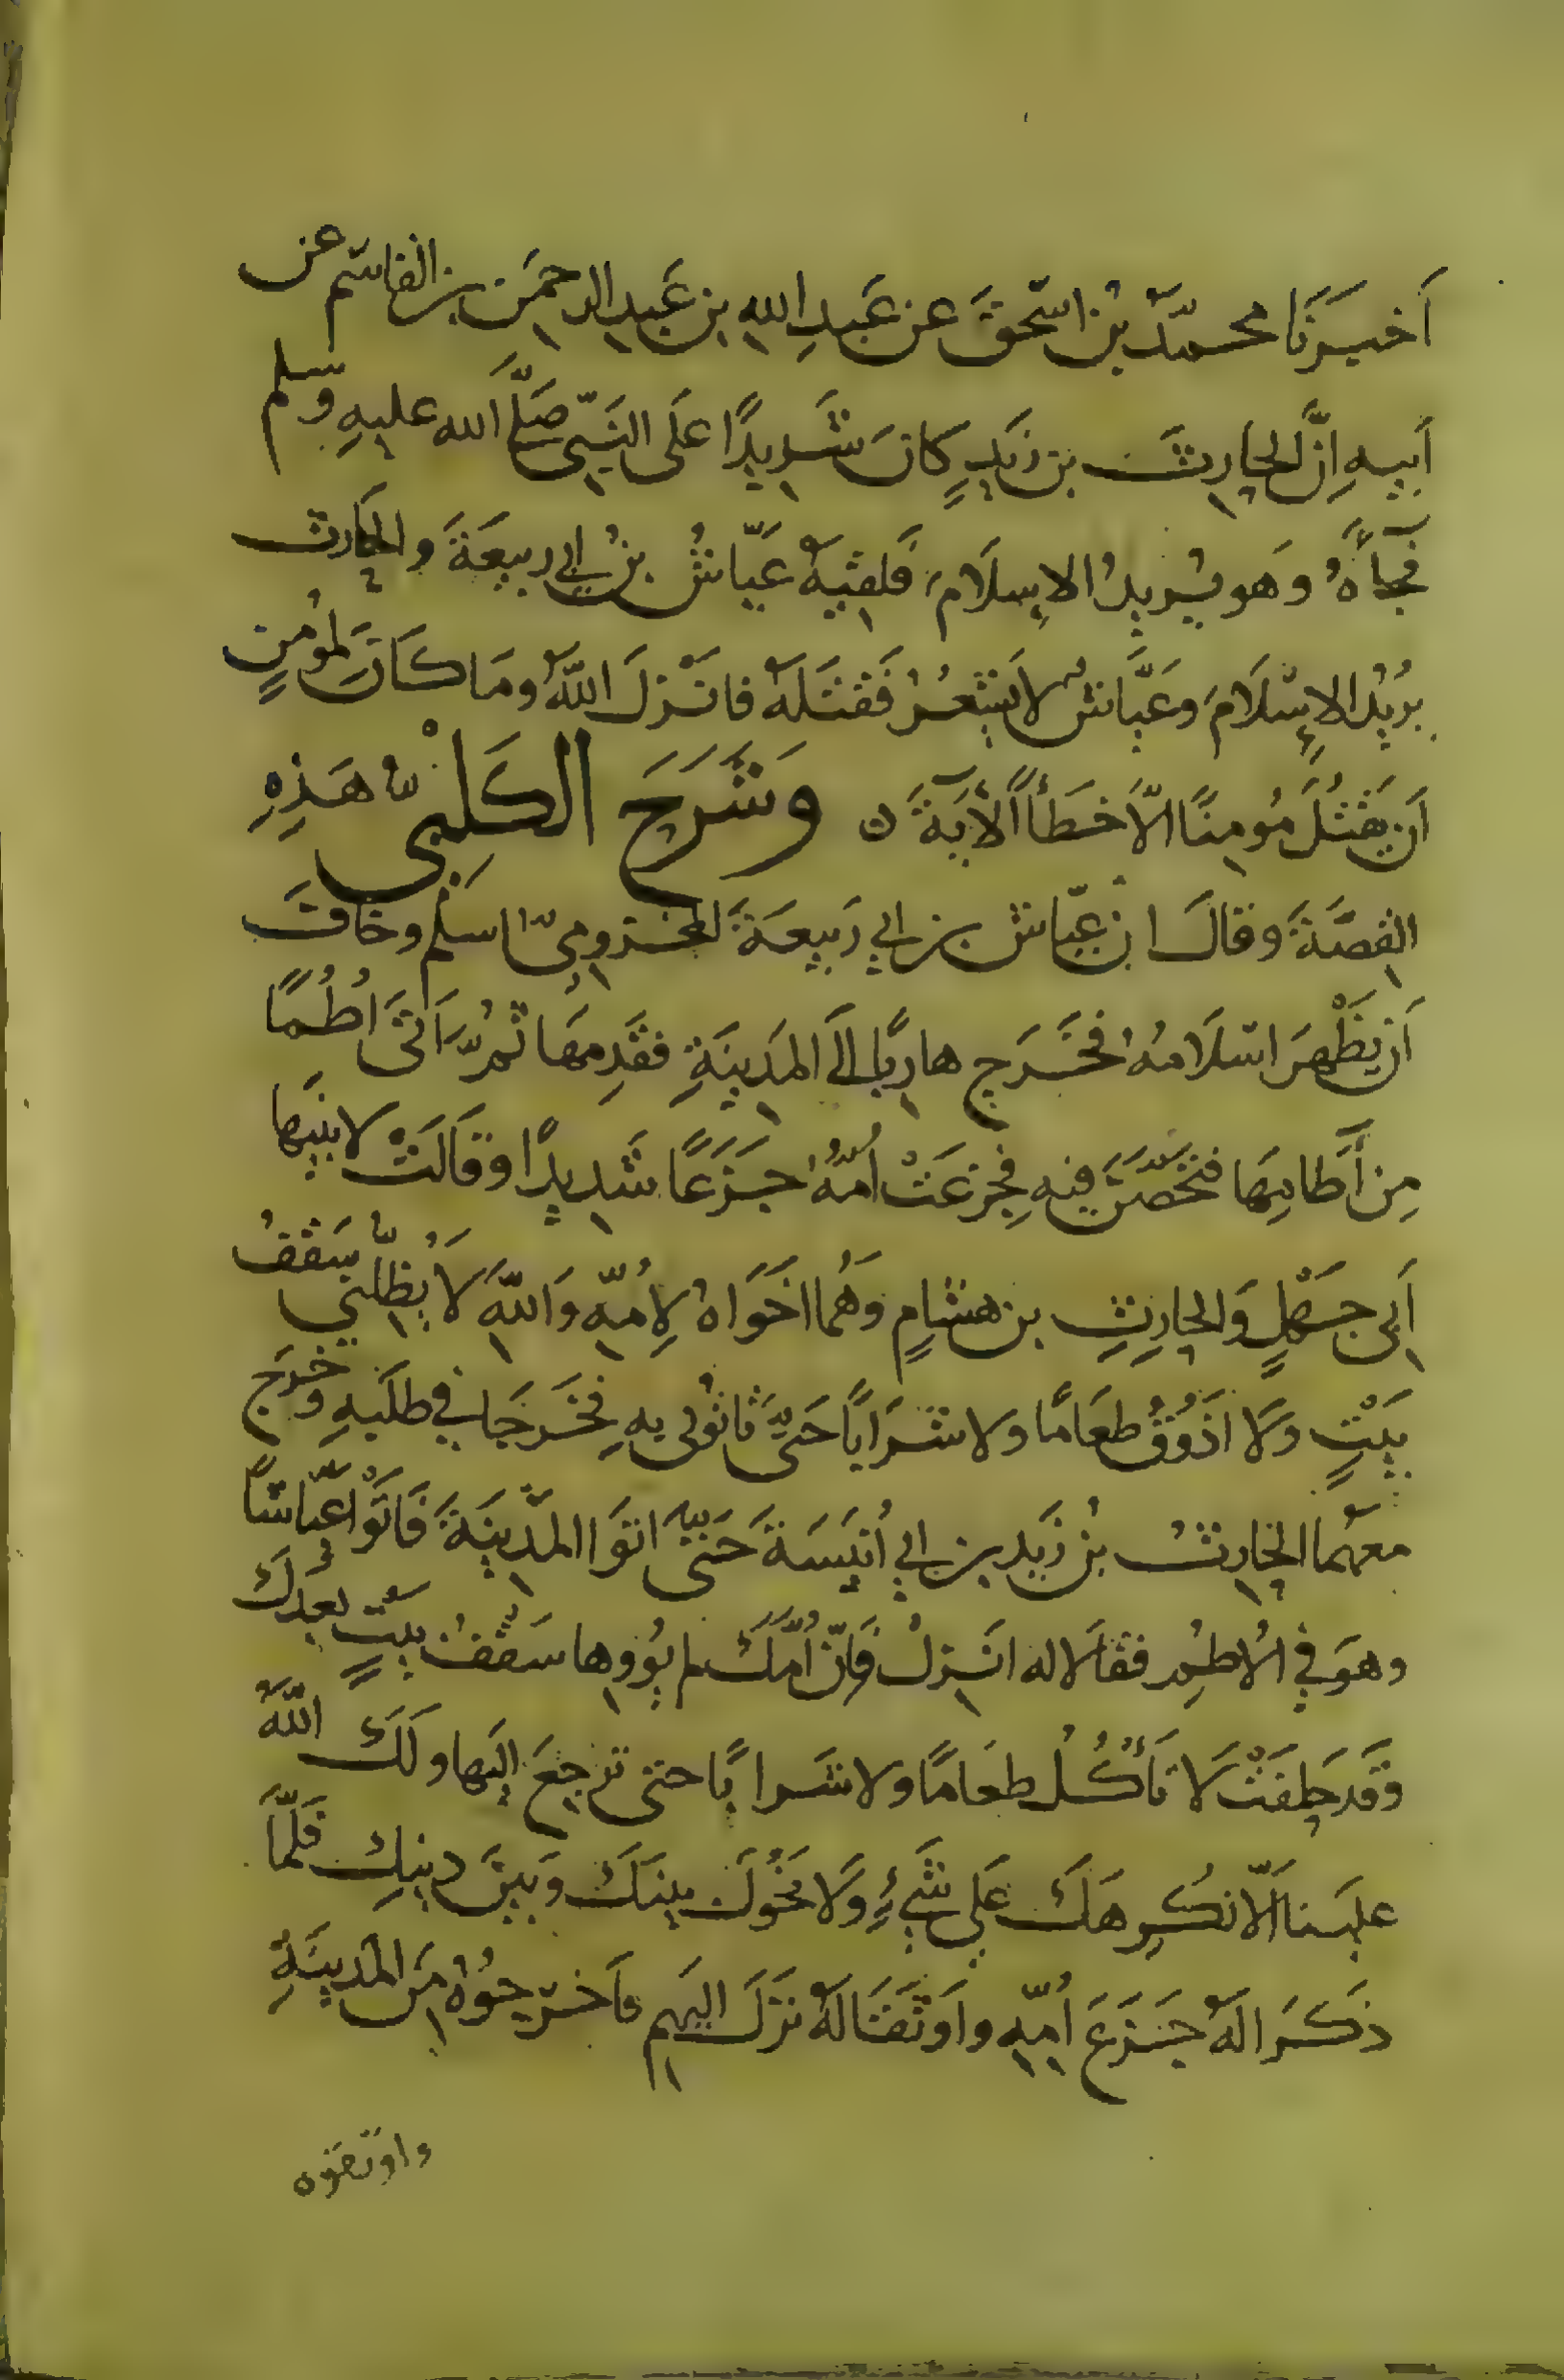 أَخبَرَنَا محمدُ بنُ اسحقَ عن عَبدِ اللهِ بن عَبدِ الرحمَن بن القاسم عن
أَبيهِ اِنَّ الحارِثَ بن زَيدٍ كانَ شَدِيدًا عَلَى النَبّيِ صَلَّى الله عليهِ وسلم
فجآءَهُ وَهو يُرِيدُ الاِسلَامَ فَلَقِيَهُ عَيّاشُ بنُ ابي ربيعَةَ والحَارث
يرُيدُ الاِسْلَامَ وعَيَّاشٌ لا يَشعُرُ فَقَتَلَهُ فانَزلَ اللهُ ومَا كَانَ لمُؤمنٍ
أَن يَقتُلَ مُومِنًا الّا خَطَأً الأيَةَ ٥ وَشَرَحَ الكَلبِيُّ هَذِهِ
القِصَّةَ وقالَ ان عيّاش بن ابي رَبِيعَةَ المخزوميّ اسلم وخافَ
أَن يظْهرَ اسلَامهُ فخَرَج هارِبًا الَى المَدِينَةِ فقَدِمهَا ثمُّ اَتَى اُطُمًا
مِن أَطامِهَا فتَحَصّنَ فيهِ فجزِعَتْ أُمّهُ جَزَعًا شَدِيدًا وقَالَتْ لابنَيها
أَبِي جَهْلٍ وَالحارِثِ بن هشامٍ وَهُمَا اخَوَاهُ لِاُمّهِ وَاللّهِ لَا يُظِلّنِي سَقفُ
بَيْتٍ وَلَا اَذُوقُ طعَامًا ولا شَرَابًا حَتّى تَاتُوني بِهِ فخَرَجَا في طلَبهِ وخرَج
معهُما الحَارِثُ بُن زَيدِ بن ابي أُنَيسَةَ حَتّى اتَوَا المدِينَةَ فَاتَوْا عيّاشًا
وهوَ في الاُطمِ فقالا له انزِلْ فَاِنّ أُمّكَ لم يُووها سَقفُ بَيتٍ بعدكَ
وَقَد حلِفَتْ لَا تَأكُلُ طعَامًا ولا شَرابًا حتى تَرجِعَ إليها ولَكَ اللّهُ
عليَنا اَلَّا نُكرِهَكَ عَلى شَيْءٍ وَلَا نَحُولَ بينَكَ وَبَينَ دِينِكَ فَلمَّا
ذَكَرَا لَهُ جَزَعَ أُمّهِ واَوثَقَا لَهُ نَزَلَ اليهم فاَخرَجوُهُ مِنَ المدِينَةِ
واوثقوه